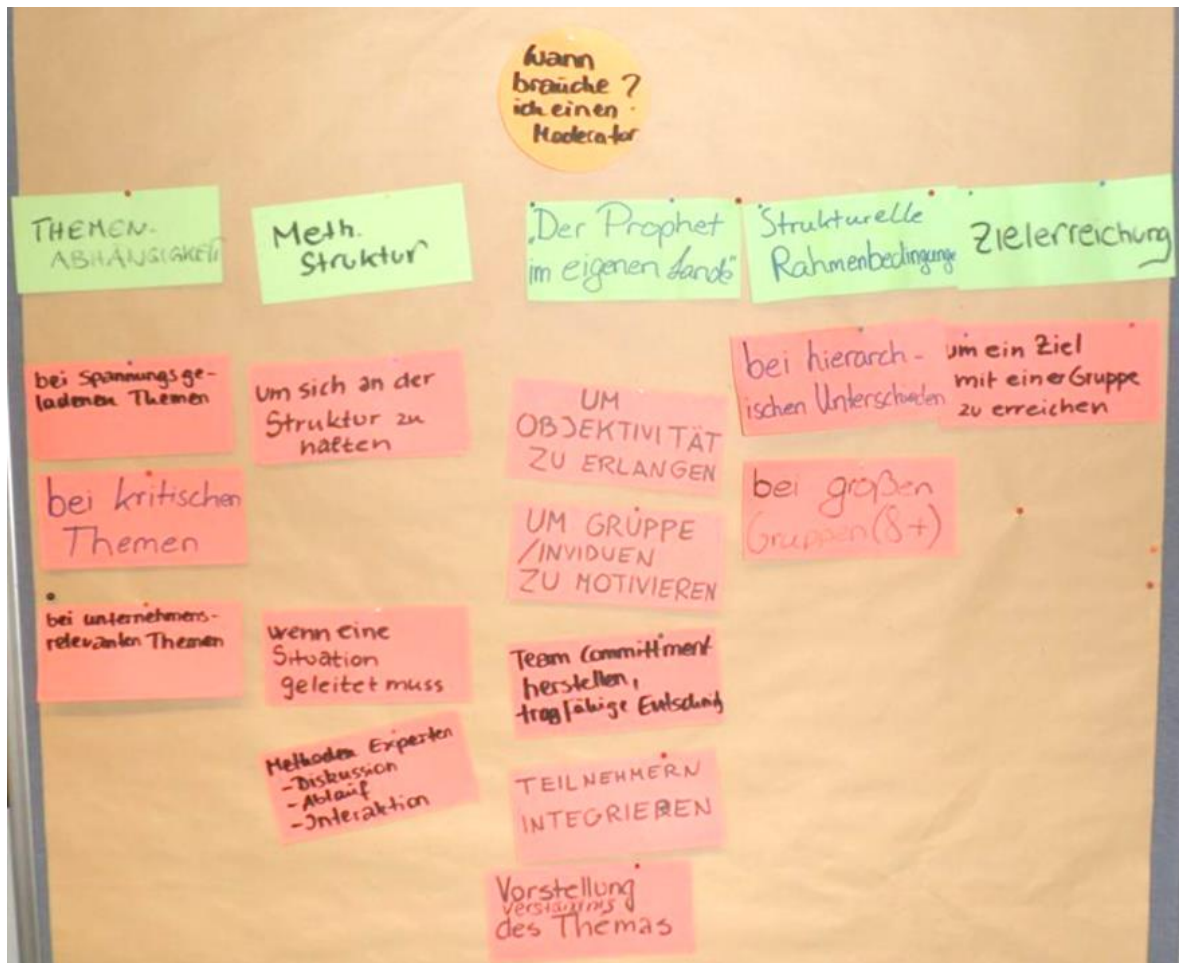 Wann
brauche ?
ich einen
Moderator
THEMEN-
ABHÄNGIGKEIT
bei Spannungsge-
ladenen Themen
bei kritischen
Themen
bei unternehmens-
relevanten Themen
Meth.
Struktur
Um sich an der
Struktur zu
halten
wenn eine
Situation
geleitet muss
Methoden Experten
-Diskussion
-Ablauf
-Interaktion
„Der Prophet
im eigenen Lande“
UM
OBJEKTIVITÄT
ZU ERLANGEN
UM GRUPPE
/INVIDUEN
ZU MOTIVIEREN
Team Committment
herstellen,
tragfähige
TEILNEHMERN
INTEGRIEREN
Vorstellung
Verständnis
des Themas
Strukturelle
Rahmenbedingunge
bei hierarch-
ischen Unterschieden
bei großen
Gruppen (8+)
Zielerreichung
um ein Ziel
mit einer Gruppe
zu erreichen